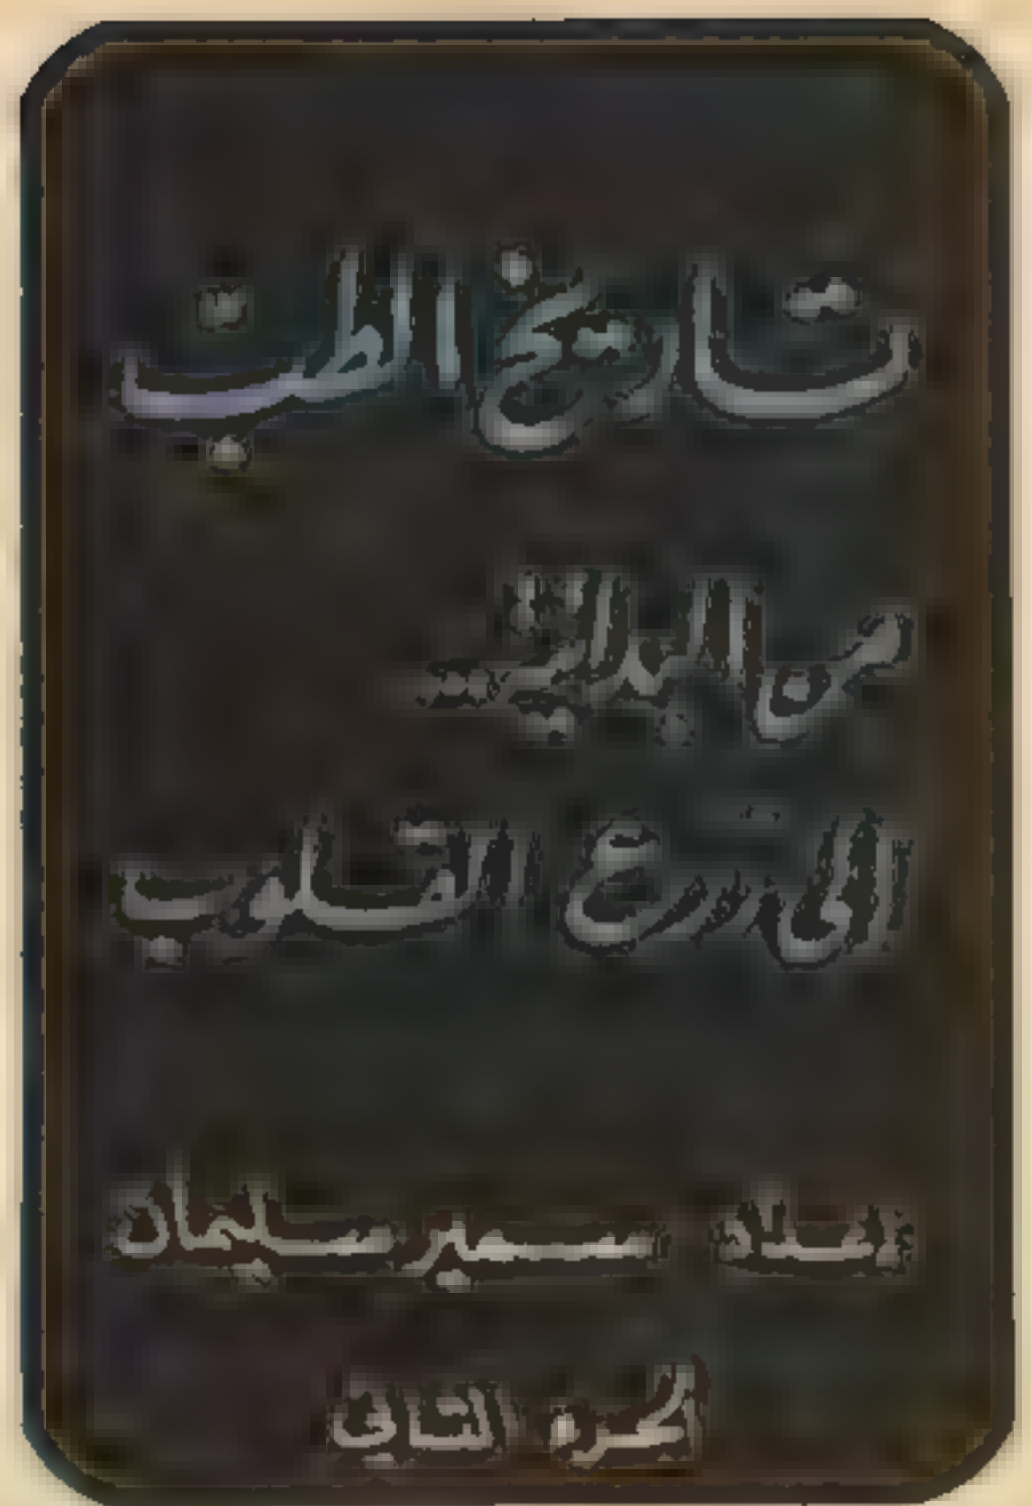 تاريخ الطب
من البداية
الى زرع القلوب
اعداد سمير سليمان
الجزء الثاني